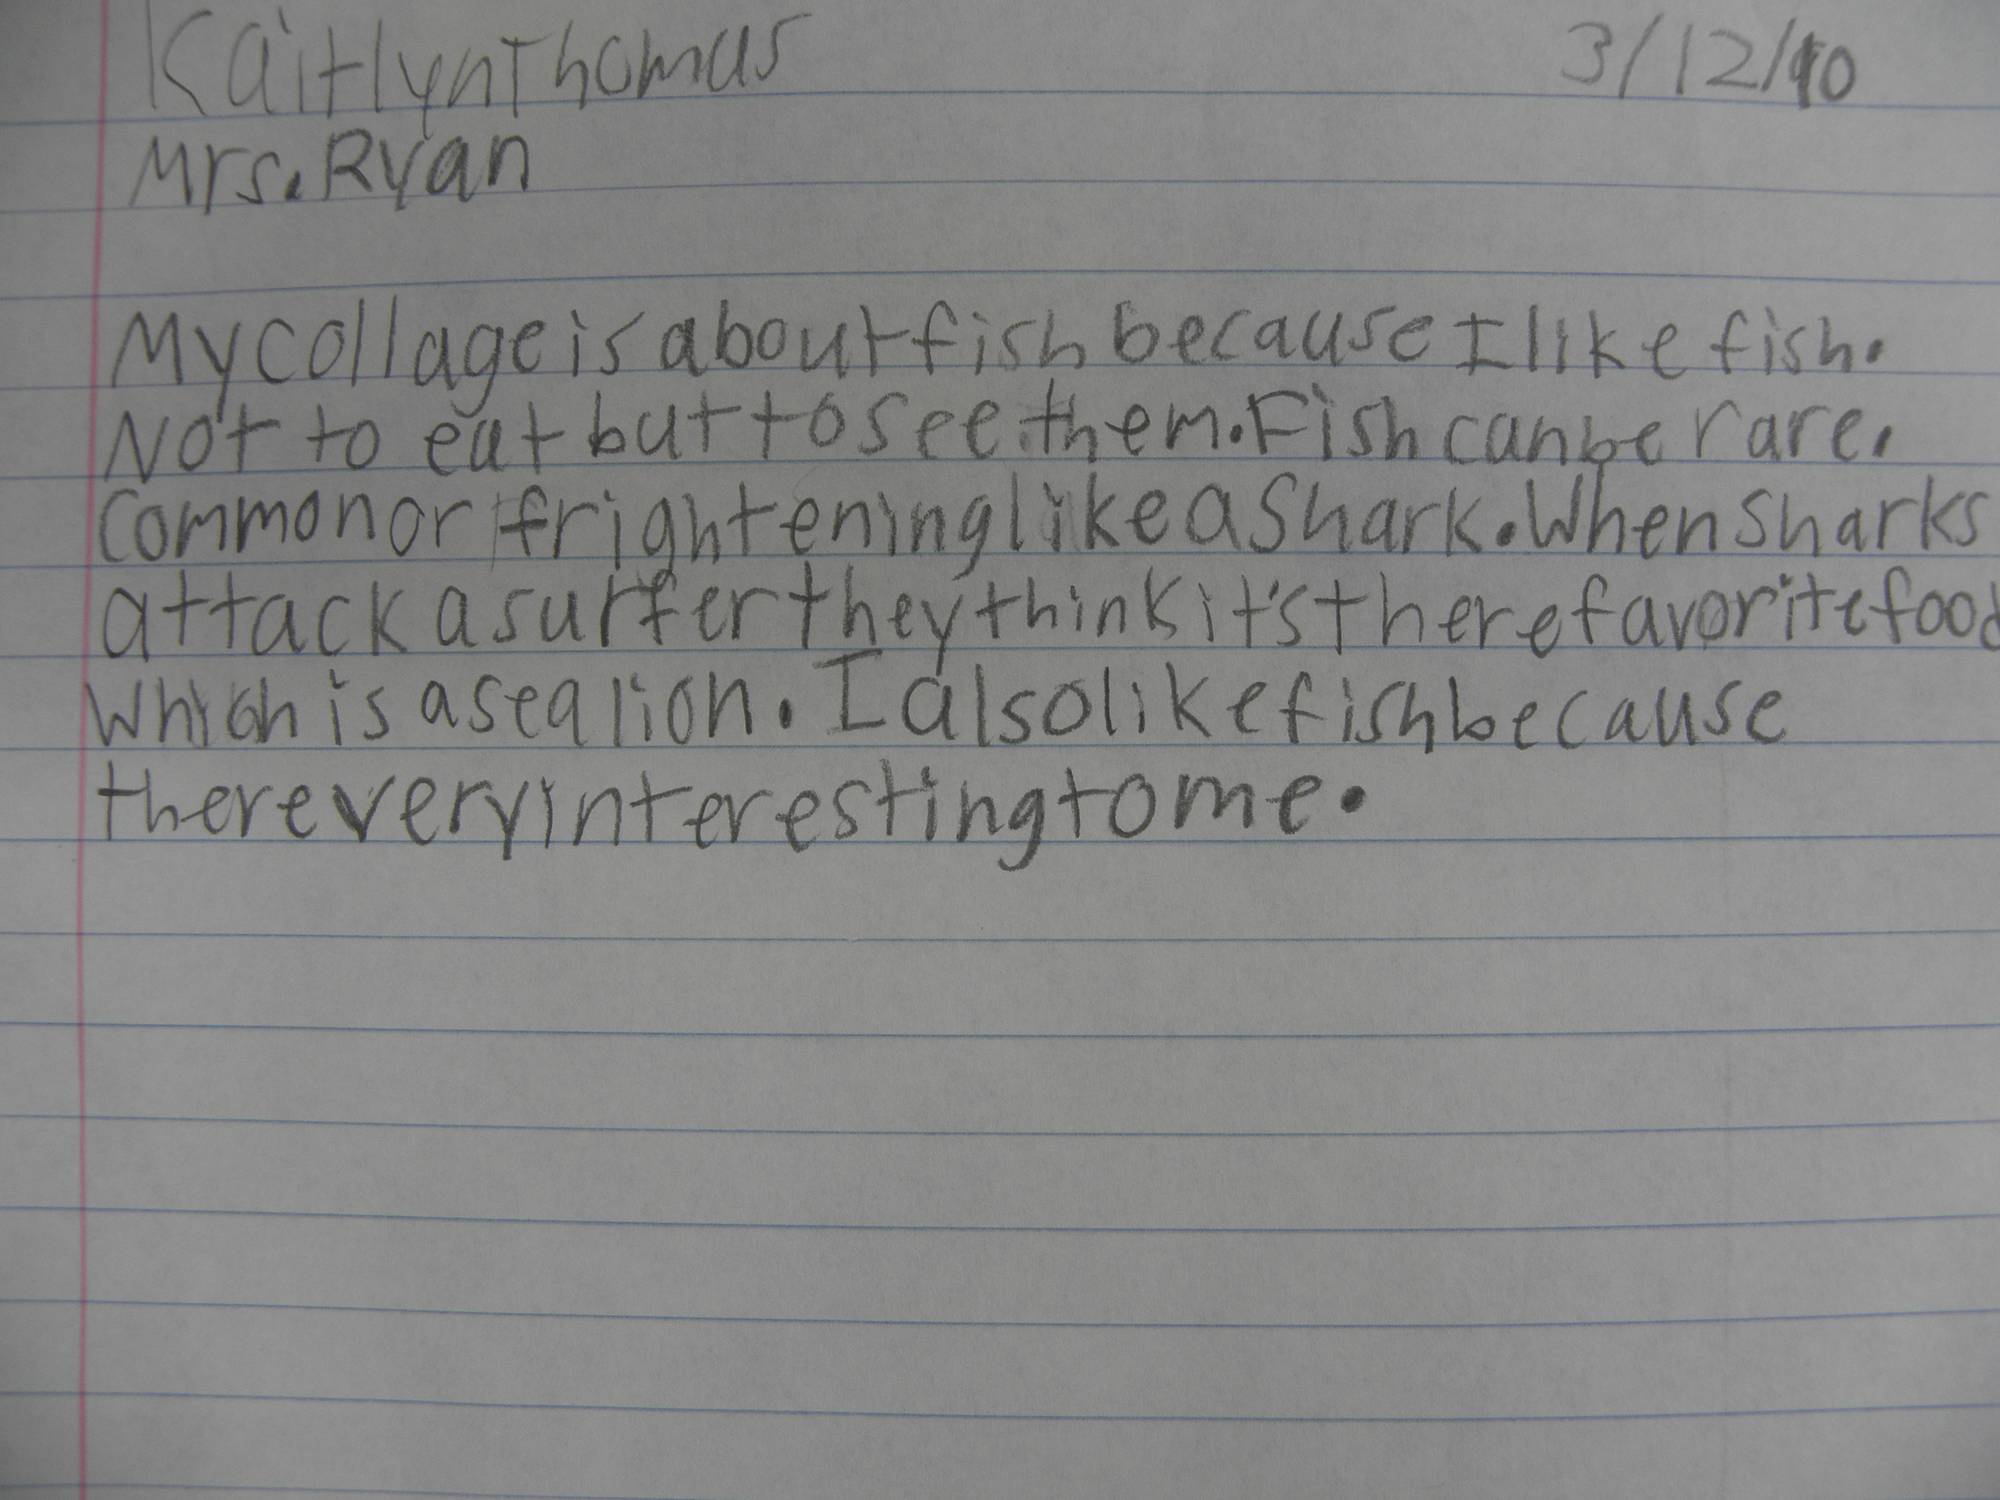 Kaitlyn Thomas 3/12/10
Mrs. Ryan
My collage is about fish because I like fish.
Not to eat but to see them. Fish can be rare,
common or frightening like a shark. When sharks
attack a surfer they think it's there favorite food
which is a sea lion. I also like fish because
there very interesting to me.